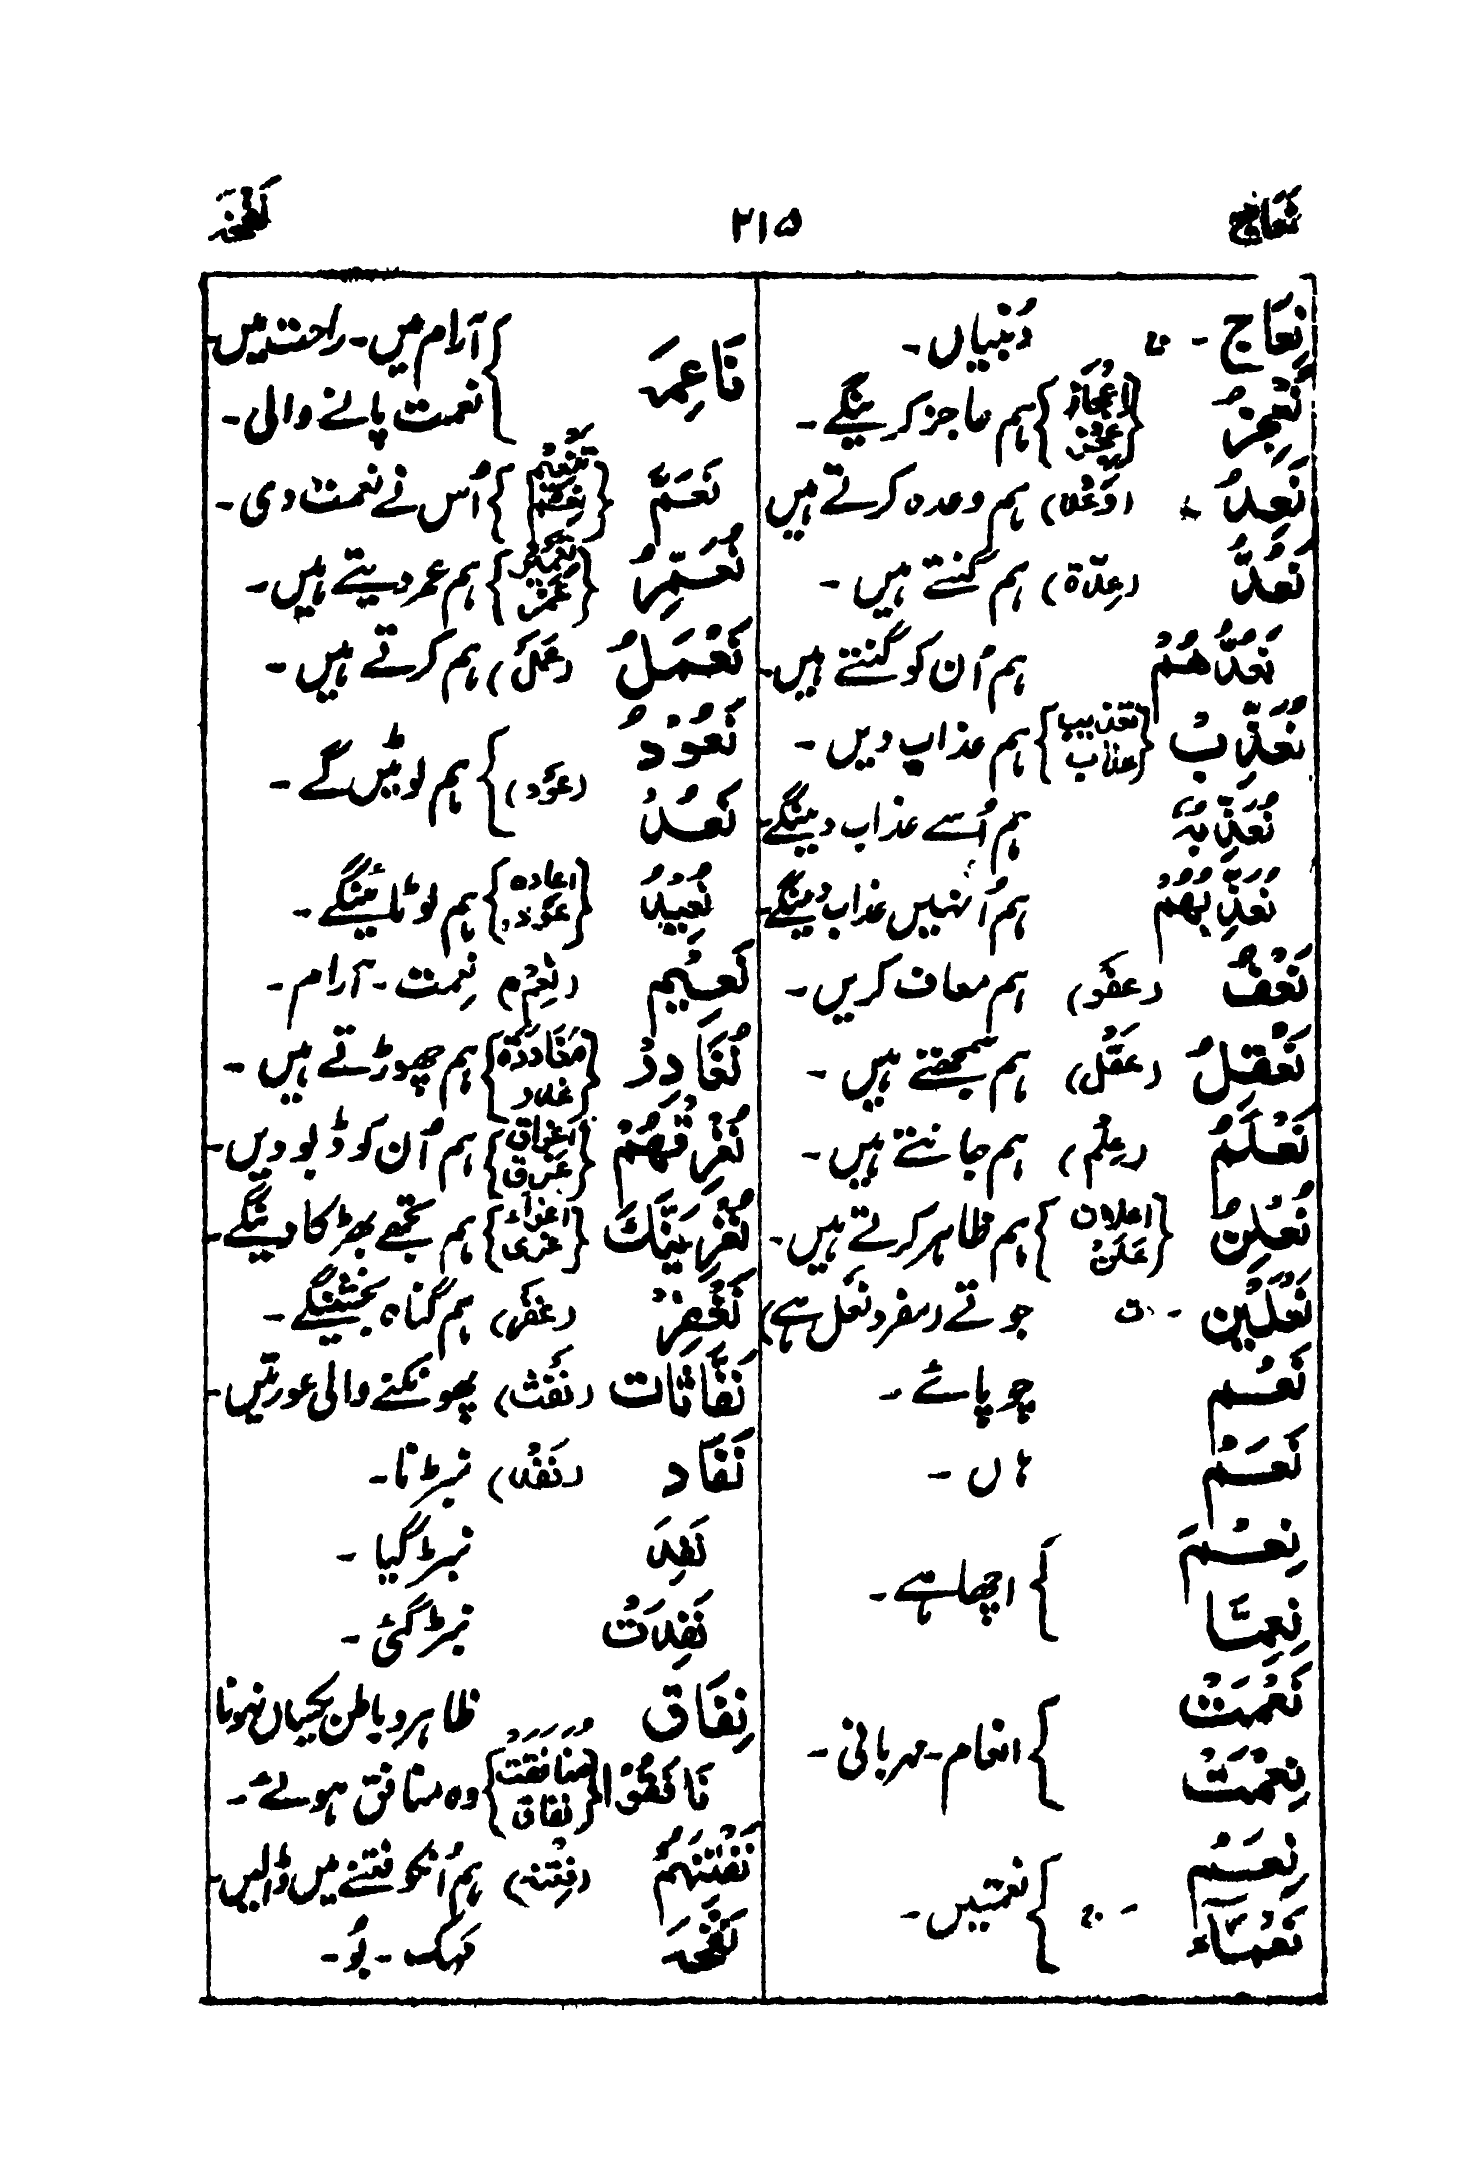 نعاج ۲۱۵ نفحہ
نِعَاج - دُنبیاں -
نُعْجِزُ {اِعْجَاز عجز} ہم عاجز کرینگے -
نَعِدُ (وَعْد) ہم وعدہ کرتے ہیں
نَعُدُّ (عِدّۃ) ہم گنتے ہیں -
نَعُدُّهُمْ ہم اُن کو گنتے ہیں -
نُعَذِّبُ {تعذیب عذاب} ہم عذاب دیں -
نُعَذِّبُهُ ہم اُسے عذاب دینگے -
نُعَذِّبُهُمْ ہم اُنہیں عذاب دینگے -
نَعْفُ (عفو) ہم معاف کریں -
نَعْقِلُ (عَقْل) ہم سمجھتے ہیں -
نَعْلَمُ (عِلْم) ہم جانتے ہیں -
نُعْلِنُ {اعلان عَلَن} ہم ظاہر کرتے ہیں -
نَعْلَيْنِ - ت جوتے (مفرد نَعْل ہے)
نَعَم چوپائے -
نَعَمْ ہاں -
نِعْمَ
نِعِمَّا } اچھا ہے -
نَعْمَت
نِعْمَت } انعام - مہربانی -
نِعَم
نَعْمَاء } نعمتیں -
نَاعِمَہ } آرام میں - راحت میں -
نعمت پانے والی -
نَعَّمَ {تَنْعِیْم نعمۃ} اُس نے نعمت دی -
نُعَمِّرُ {تعمیر عُمر} ہم عمر دیتے ہیں -
نَعْمَلُ (عَمَل) ہم کرتے ہیں -
نَعُوْدُ
نَعُدْ } (عَوْد) ہم لوٹیں گے -
نُعِیْدُ {اعادہ عَوْد} ہم لوٹائینگے -
نَعِیْم (نِعَم) نِعمت - آرام -
نُغَادِرُ {مُغَادَرَۃ غدر} ہم چھوڑتے ہیں -
نُغْرِقُهُمْ {اِغراق غرق} ہم اُن کو ڈبو دیں -
نُغْرِیَنَّکَ {اغراء غری} ہم تجھے بھڑکا دینگے -
نَغْفِرْ (غَفْر) ہم گناہ بخشینگے -
نَفَّاثَات (نَفْث) پھونکنے والی عورتیں -
نَفَاد (نَفْد) نبڑنا -
نَفِدَ نبڑ گیا -
نَفِدَتْ نبڑ گئی -
نِفَاق ظاہر و باطن یکساں نہونا
نَافَقُوْا {منافقت نفاق} وہ منافق ہوئے -
نَفْتِنَهُمْ (فِتْنہ) ہم اُنکو فتنے میں ڈالیں -
نَفْحَہ مہک - بُو -